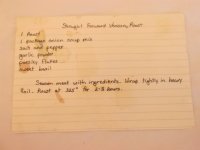 Straight Forward Venison Roast
1 Roast
1 package onion soup mix
salt and pepper
garlic powder
parsley flakes
sweet basil
Season meat with ingredients. Wrap tightly in heavy
foil. Roast at 325° for 2-3 hours.